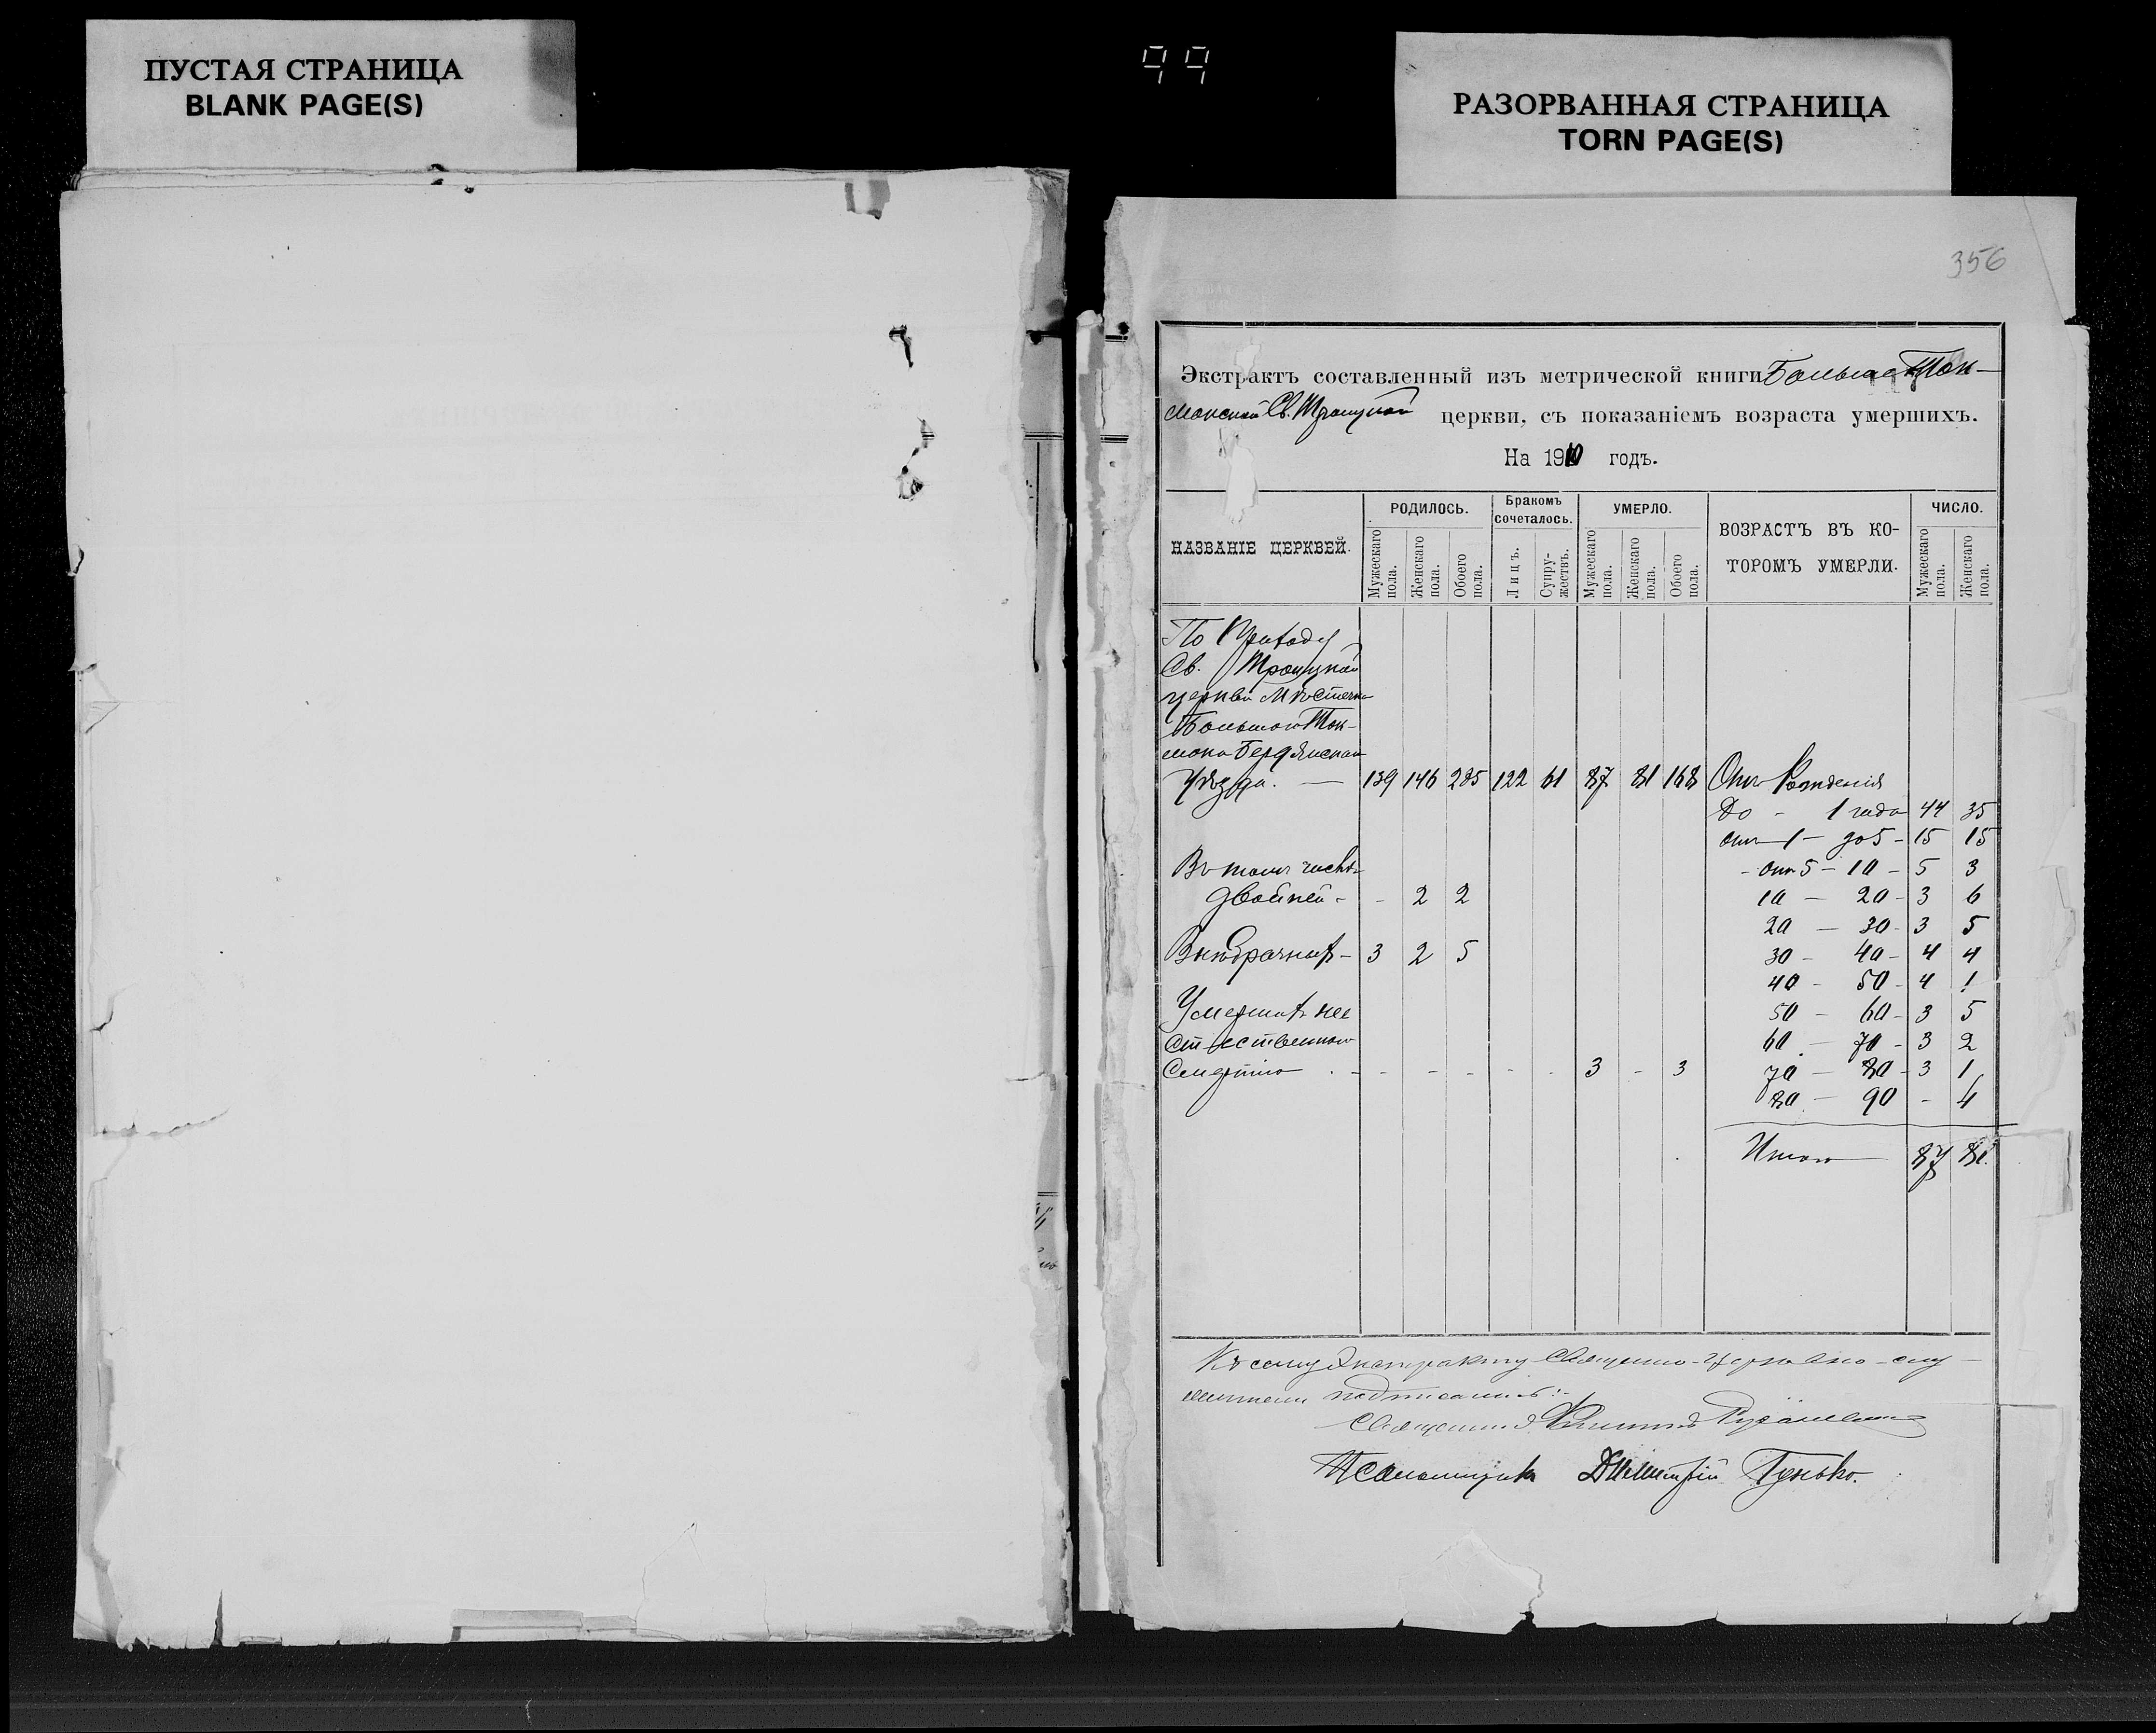 ПУСТАЯ СТРАНИЦА
BLANK PAGE(S)
99
РАЗОРВАННАЯ СТРАНИЦА
TORN PAGE(S)
356
Экстрактъ составленный изъ метрической книги Больше-Ток-
макской Св. Троицкой церкви, съ показаніемъ возраста умершихъ.
На 1910 годъ.
НАЗВАНІЕ ЦЕРКВЕЙ.
РОДИЛОСЬ.
Мужескаго пола.
Женскаго пола.
Обоего пола.
Бракомъ сочеталось.
Лицъ.
Супружествъ.
УМЕРЛО.
Мужескаго пола.
Женскаго пола.
Обоего пола.
ВОЗРАСТЪ ВЪ КО-
ТОРОМЪ УМЕРЛИ.
ЧИСЛО.
Мужескаго пола.
Женскаго пола.
По Приходу
Св. Троицкой
церкви Мѣстечка
Большого Ток-
мака Бердянскаго
Уѣзда. — 139 146 285 122 61 87 81 168 Отъ Рожденія
До - 1 года 44 35
отъ 1 - до 5 - 15 15
Въ томъ числѣ
- отъ 5 - 10 - 5 3
двойней - - 2 2
10 — 20 - 3 6
20 — 30 - 3 5
Внѣбрачныхъ - 3 2 5
30 - 40 - 4 4
40 - 50 - 4 1
Умершихъ нее
50 - 60 - 3 5
стественною
60 - 70 - 3 2
Смертію - - - - - - 3 - 3
70 — 80 - 3 1
80 — 90 - 4
Итого 87 81.
Къ сему Экстракту Священно-Церковно-слу-
жители подписались:-
Священникъ
Псаломщикъ Димитрій Гунько.